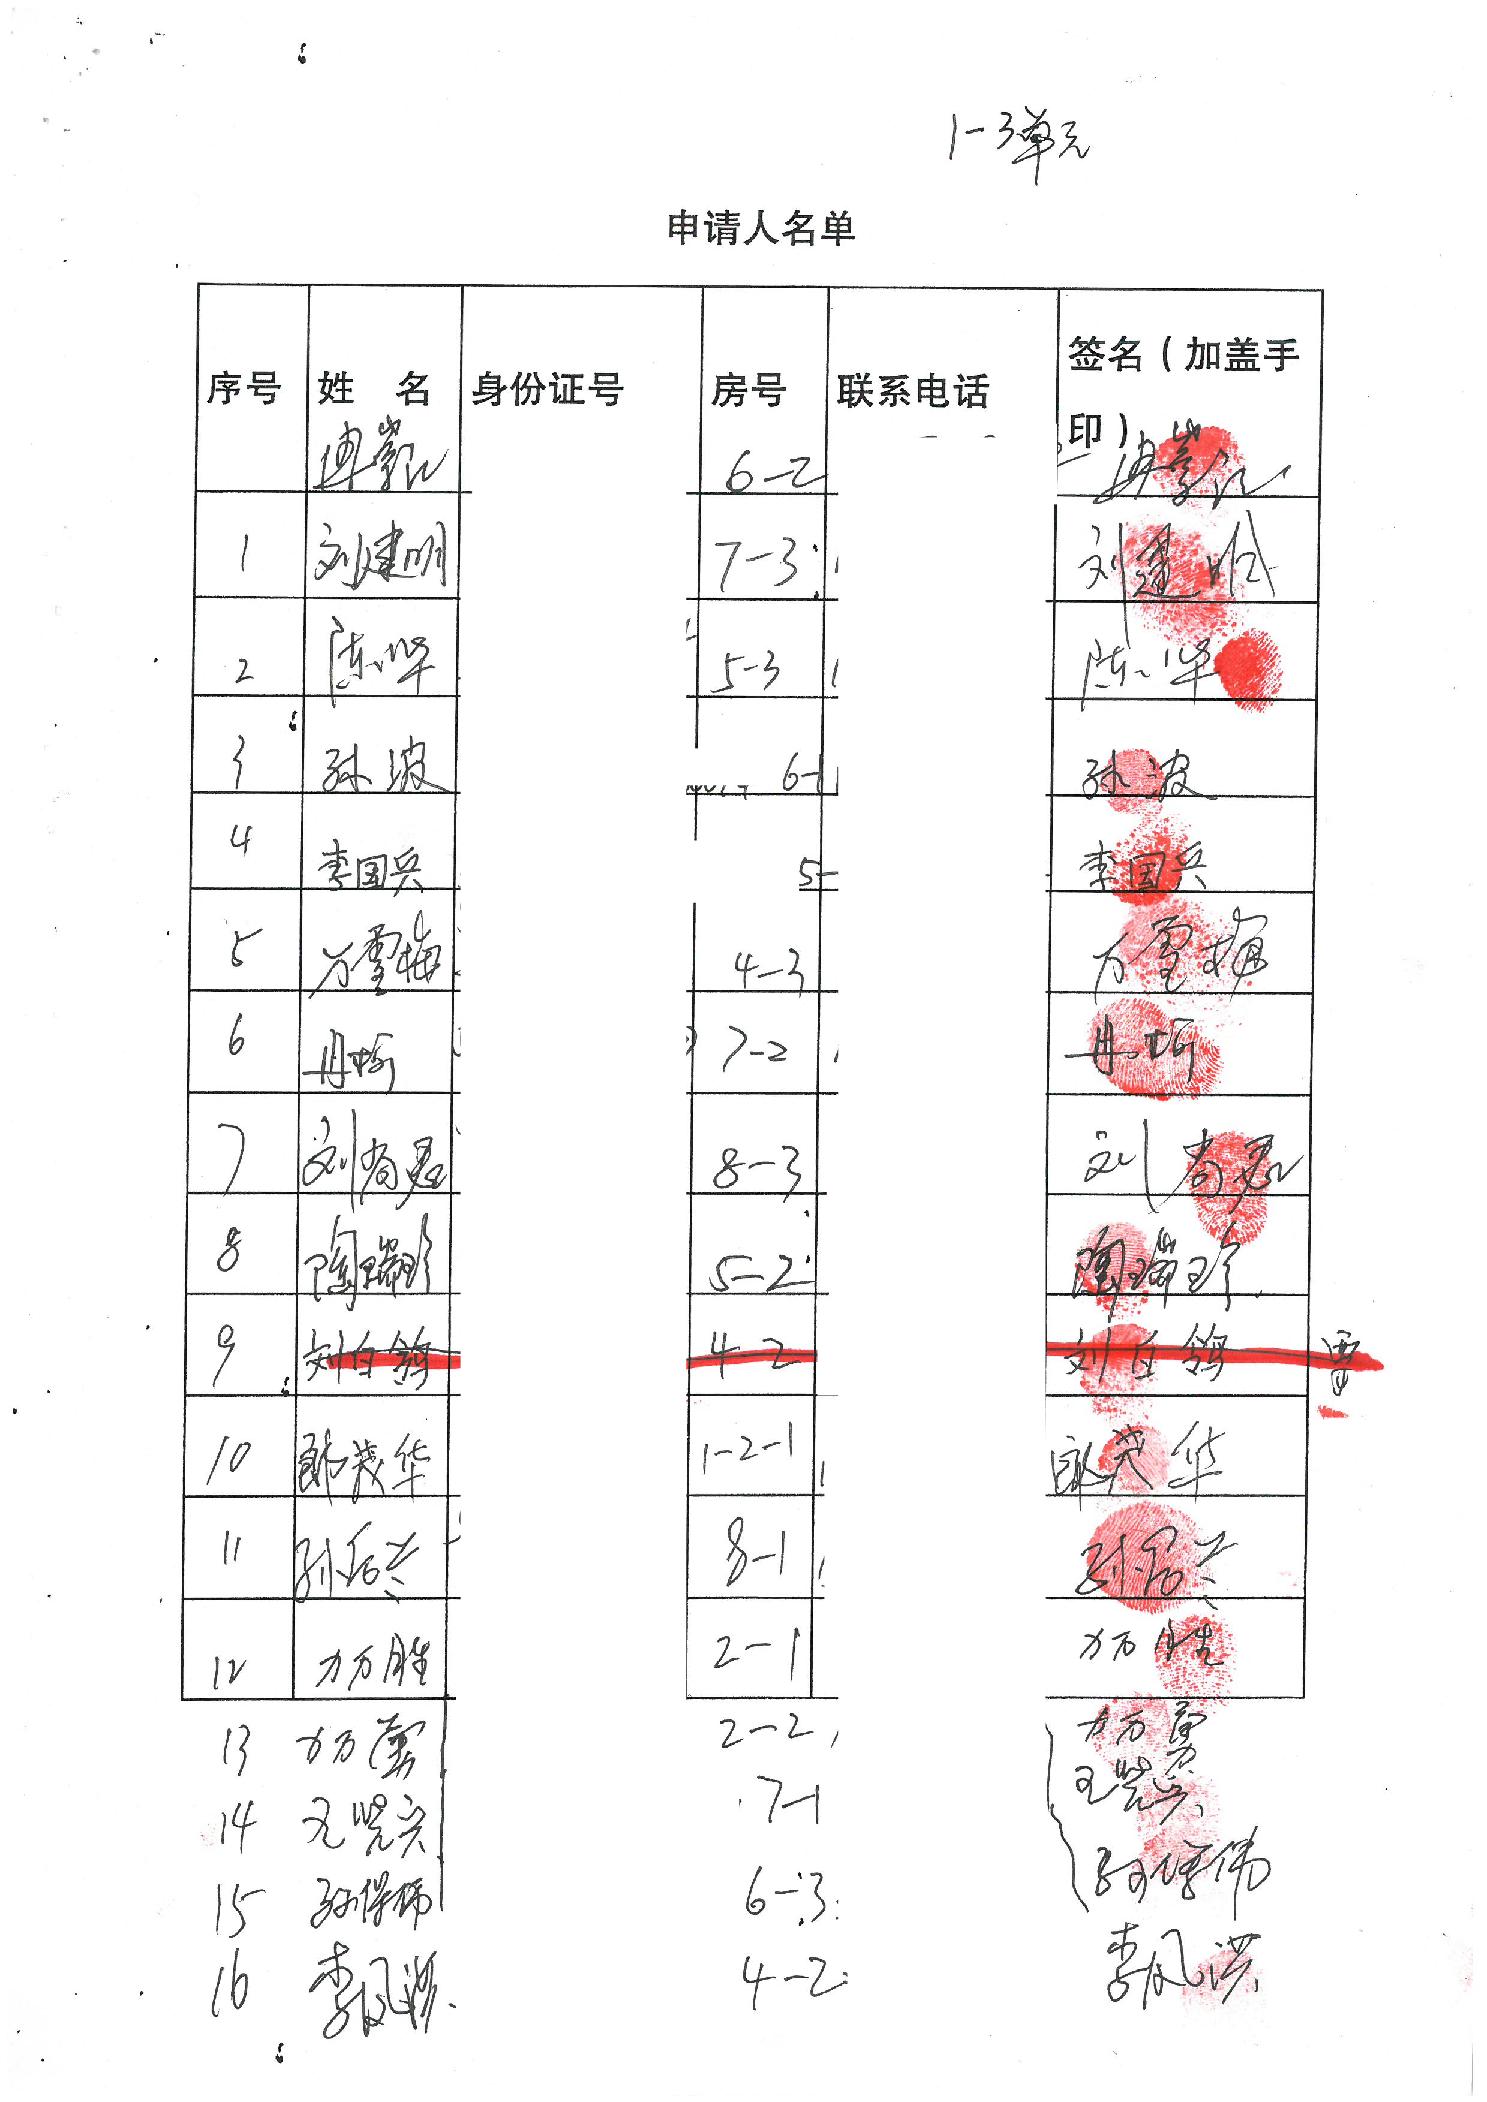 1-3单元
申请人名单
序号 姓 名 身份证号 房号 联系电话 签名（加盖手印）
6-2
1 刘建明 7-3 刘建明
2 陈华 5-3 陈华
3 孙波 6-1 孙波
4 李国兴 5- 李国兴
5 万雪梅 4-3 万雪梅
6 冉梅 7-2 冉梅
7 刘尚君 8-3 刘尚君
8 陶瑞珍 5-2 陶瑞珍
9 刘白鸽 4-2 刘白鸽
10 郎茂华 1-2-1 郎茂华
11 孙启兰 8-1 孙启兰
12 方万胜 2-1 方万胜
13 方万 2-2 方万
14 7-1
15 孙保伟 6-3 孙保伟
16 李凤洪 4-2 李凤洪